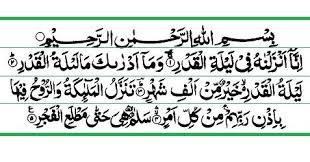 بِسْمِ اللهِ الرَّحْمٰنِ الرَّحِيْمِ
اِنَّاۤ اَنْزَلْنٰهُ فِيْ لَيْلَةِ الْقَدْرِ ۚ وَمَاۤ اَدْرٰىكَ مَا لَيْلَةُ الْقَدْرِ ؕ
لَيْلَةُ الْقَدْرِ خَيْرٌ مِّنْ اَلْفِ شَهْرٍ ؕ تَنَزَّلُ الْمَلٰٓئِكَةُ وَالرُّوْحُ فِيْهَا
بِاِذْنِ رَبِّهِمْ ۚ مِنْ كُلِّ اَمْرٍ ۛ سَلٰمٌ ۛ هِيَ حَتّٰى مَطْلَعِ الْفَجْرِ